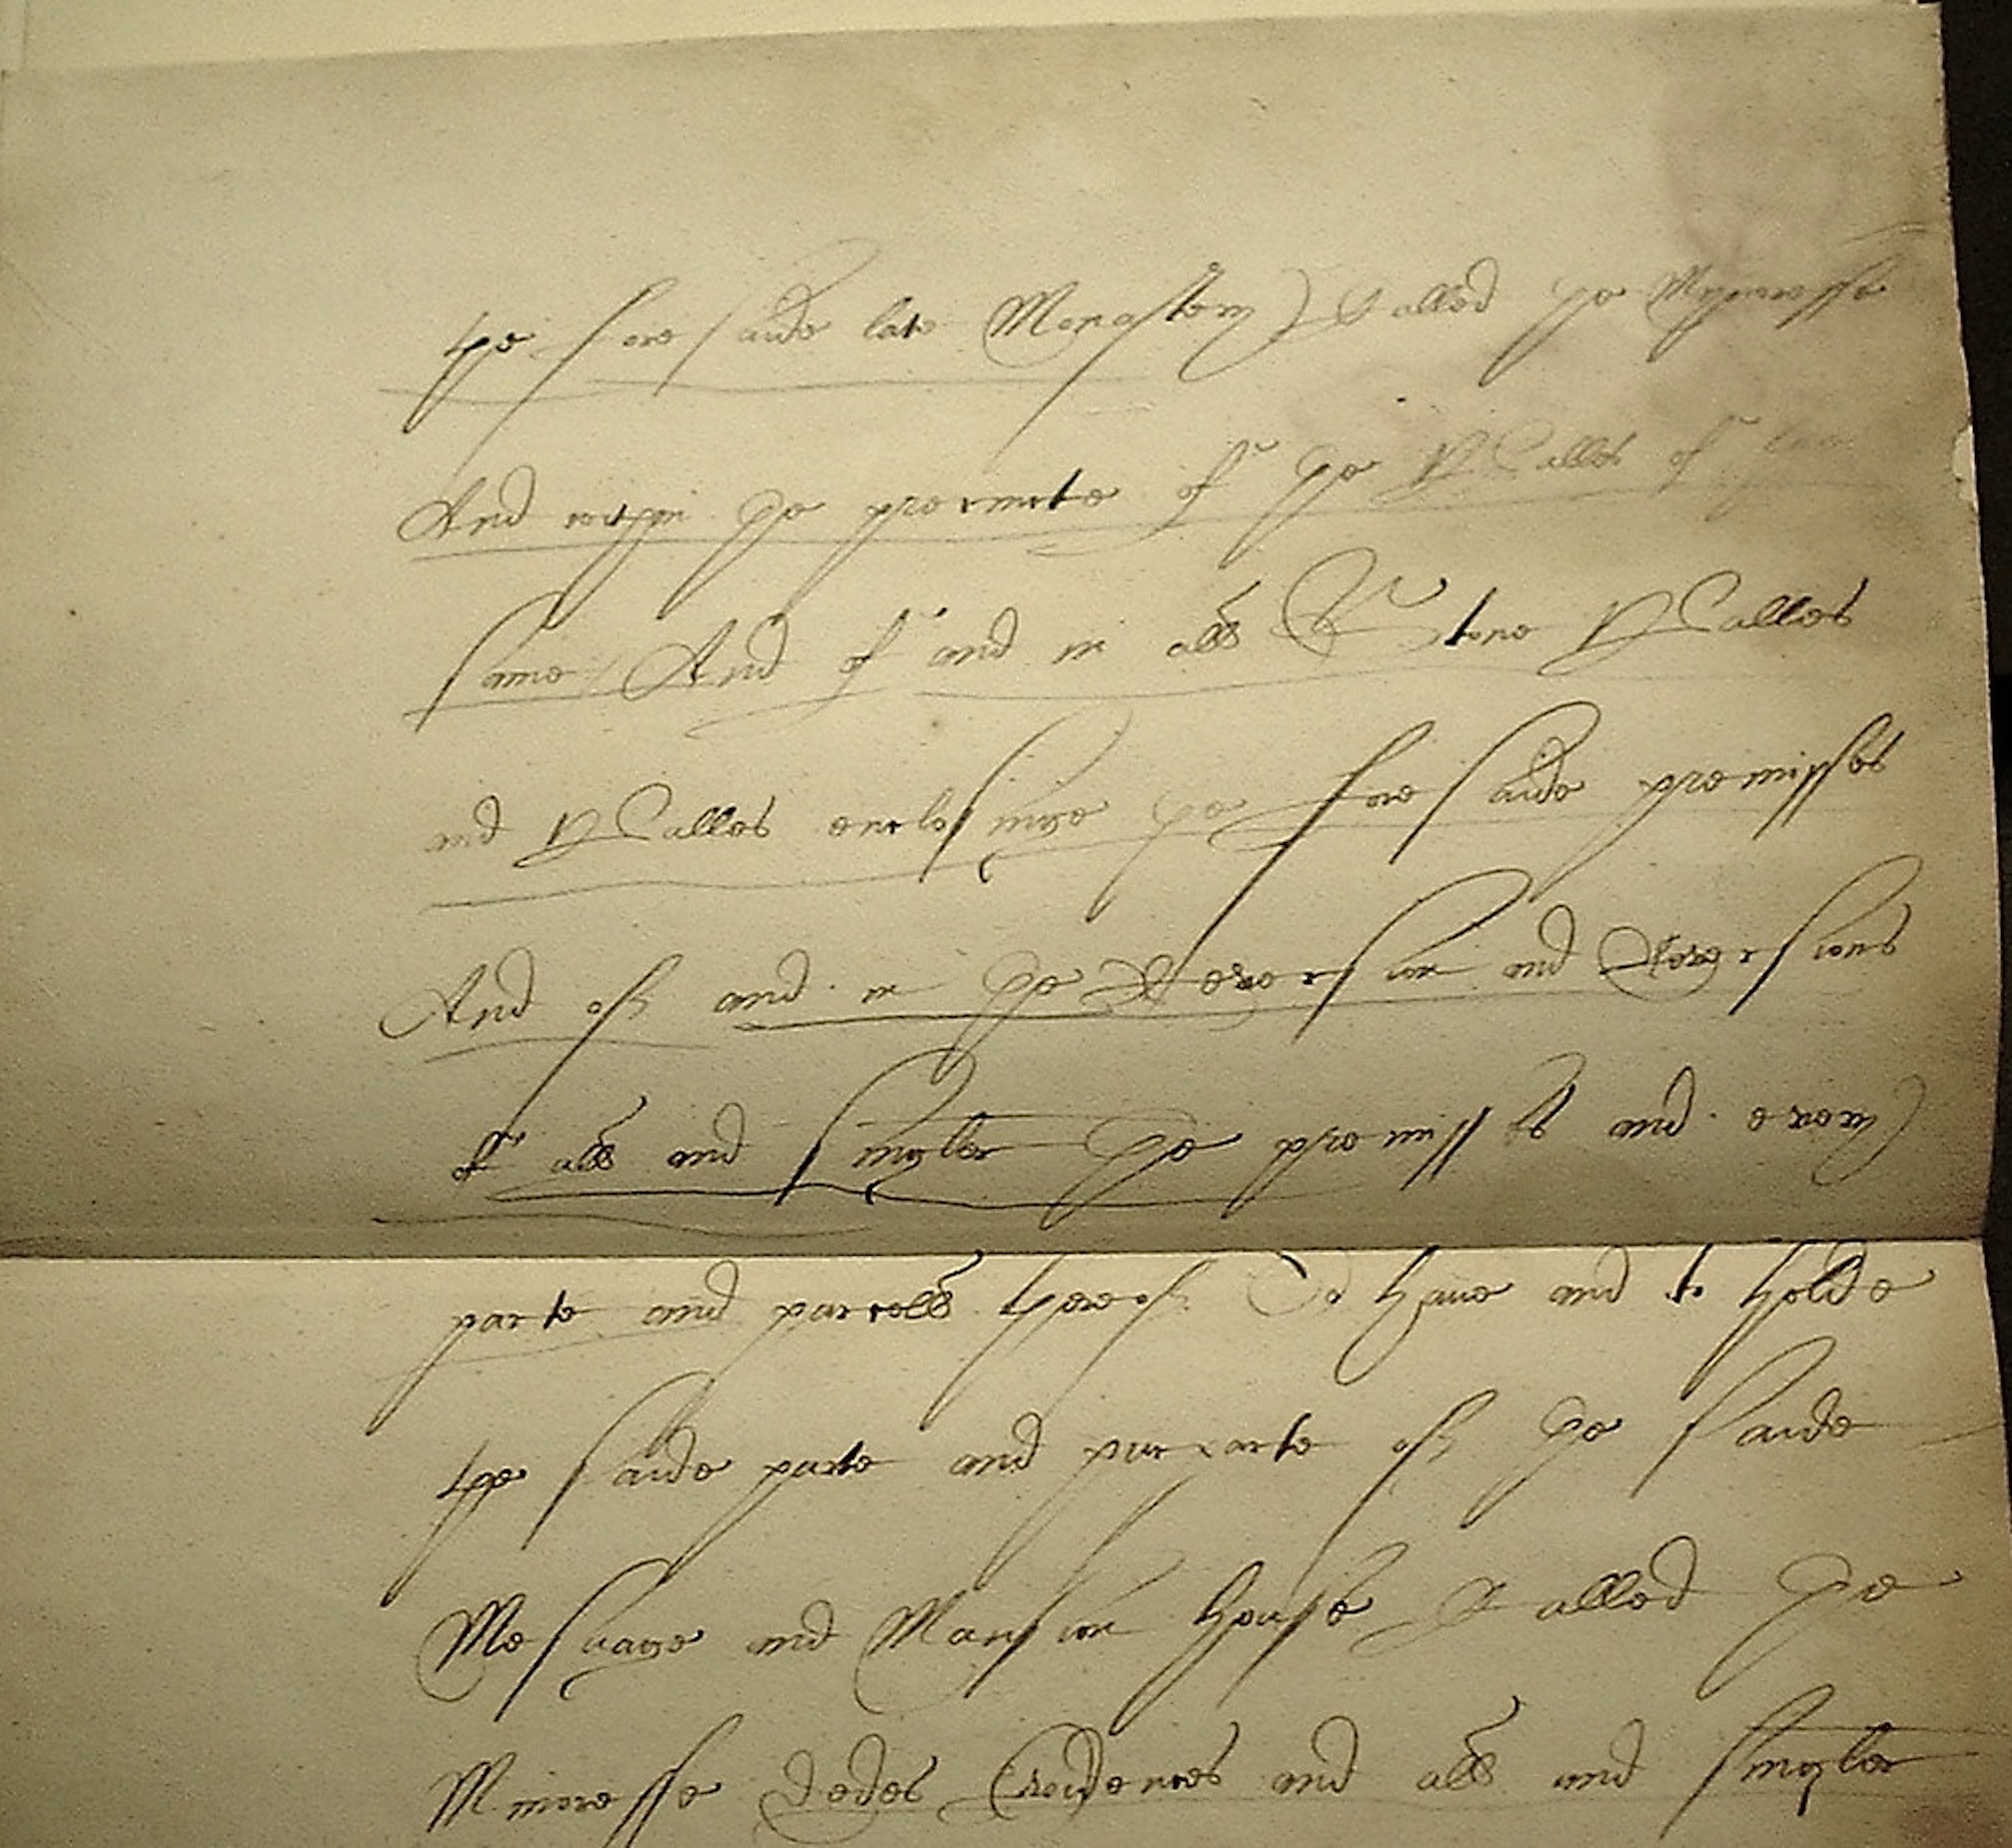 the foresaide late Monastery Called the Mynoresse
And within the precincte of the Walles of
same And of and in all Stone Walles
and Walles enclosinge the foresaide premisses
And of and in the Reversion and Reversions
of all and Singler the premisses and every
parte and parcell thereof To haue and to holde
the saide parte and purparte of the saide
Mesuage and Mansion house Called the
Minoresse dedes Evidences and all and Singler